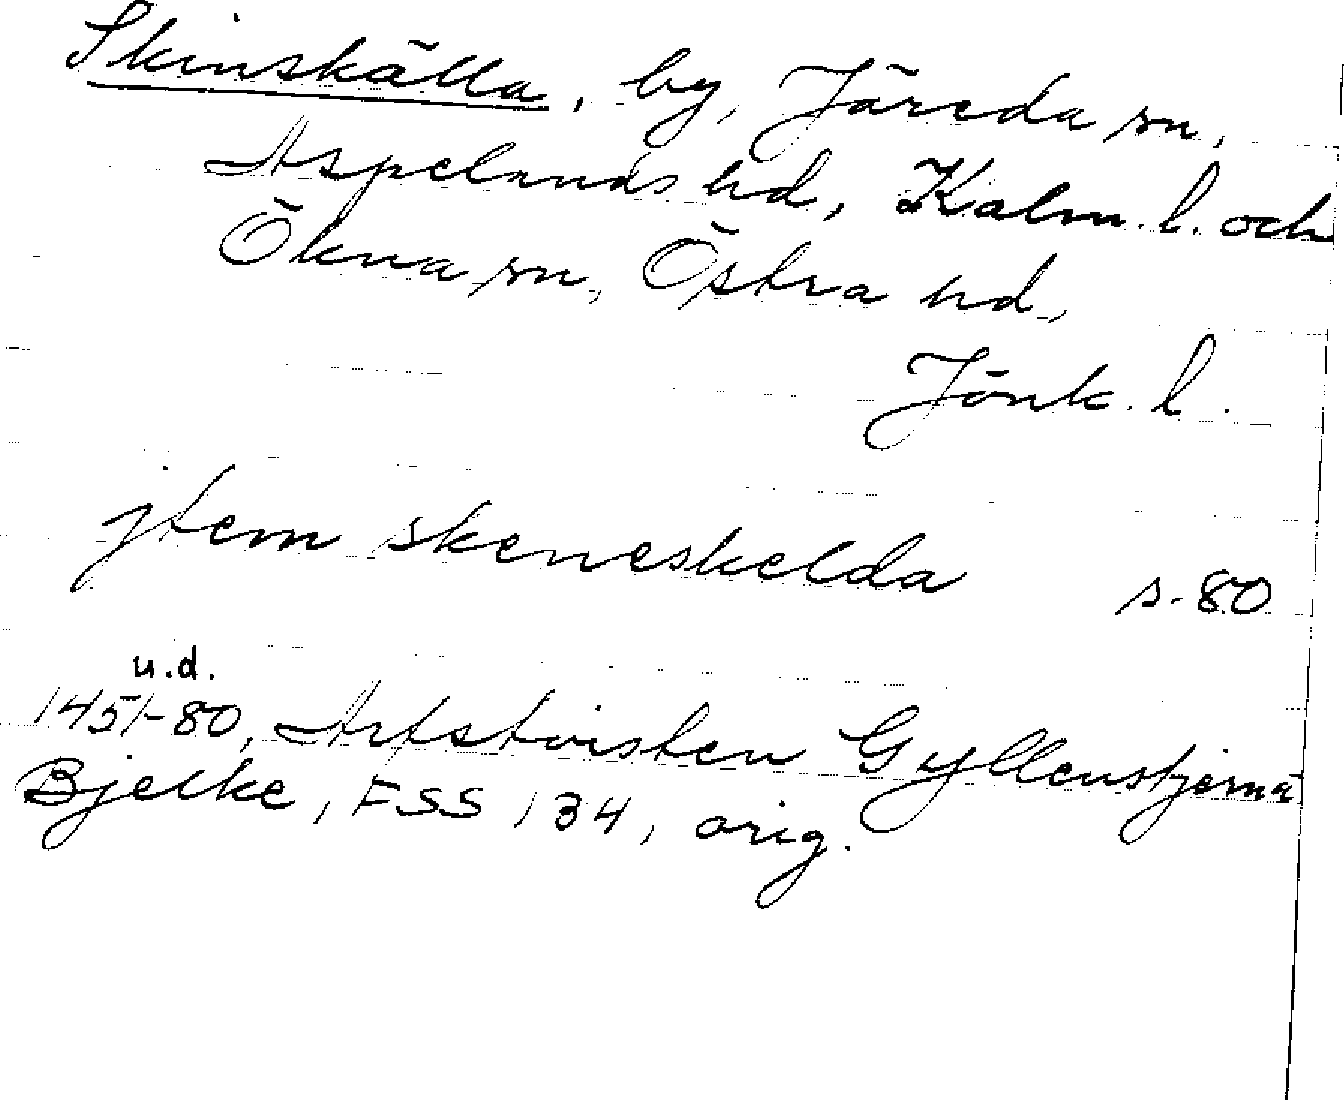 Skinskälla, by, Järeda sn,
Aspelands hd, Kalm. l. och
Ökna sn, Östra hd,
Jönk. l.
jtem skeneskelda s. 80
u.d.
1451-80, Arfstvisten Gyllenstjerna
Bjelke, FSS 134, orig.